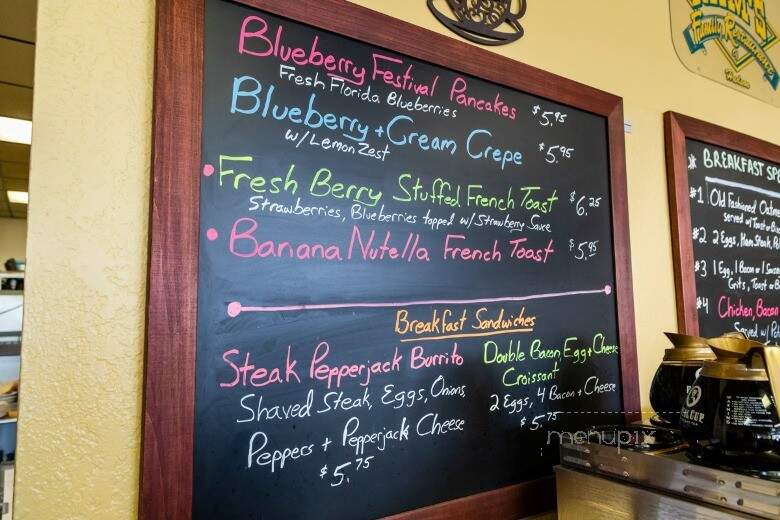 Blueberry Festival Pancakes $5.95
Fresh Florida Blueberries
Blueberry + Cream Crepe $5.95
w/ Lemon Zest
• Fresh Berry Stuffed French Toast $6.25
Strawberries, Blueberries topped w/ Strawberry Sauce
• Banana Nutella French Toast $5.95
Breakfast Sandwiches
Steak Pepperjack Burrito
Shaved Steak, Eggs, Onions
Peppers + Pepperjack Cheese
$5.75
Double Bacon, Egg + Cheese
Croissant
2 Eggs, 4 Bacon + Cheese
$5.75
menupix
Friendly Restaurant
BREAKFAST SPE
#1 Old Fashioned Oatm
served w/ Toast or
#2 2 Eggs, Ham Steak,
#3 1 Egg, 1 Bacon or 1
Grits, Toast or
#4 Chicken, Bacon
Served w/
CUP